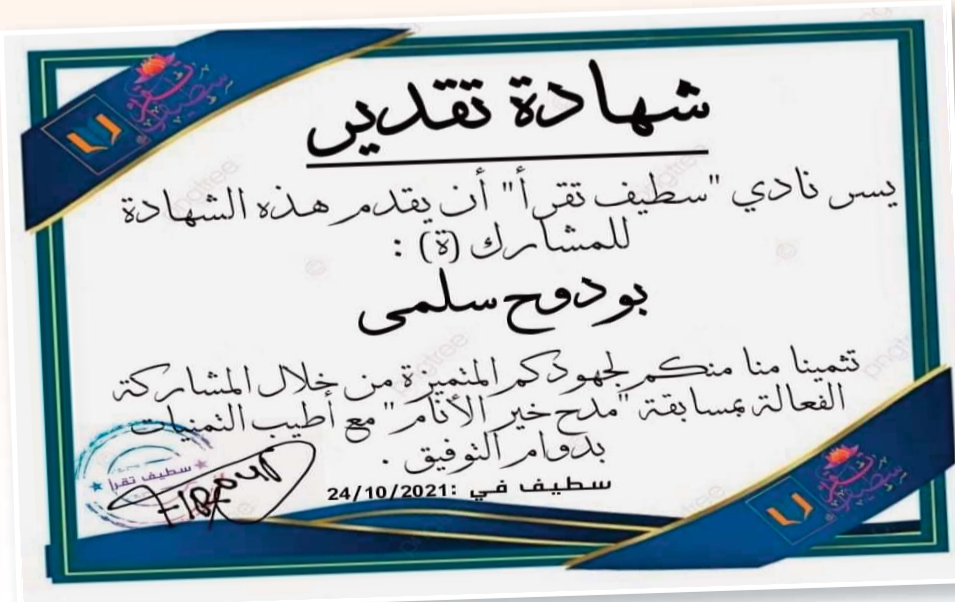 شهادة تقدير
يسر نادي "سطيف تقرأ" أن يقدم هذه الشهادة
للمشارك (ة) :
بودوح سلمى
تثمينا منا منكم لجهودكم المتميزة من خلال المشاركة
الفعالة بمسابقة "مدح خير الأنام" مع أطيب التمنيات
بدوام التوفيق .
سطيف في :24/10/2021
سطيف تقرأ